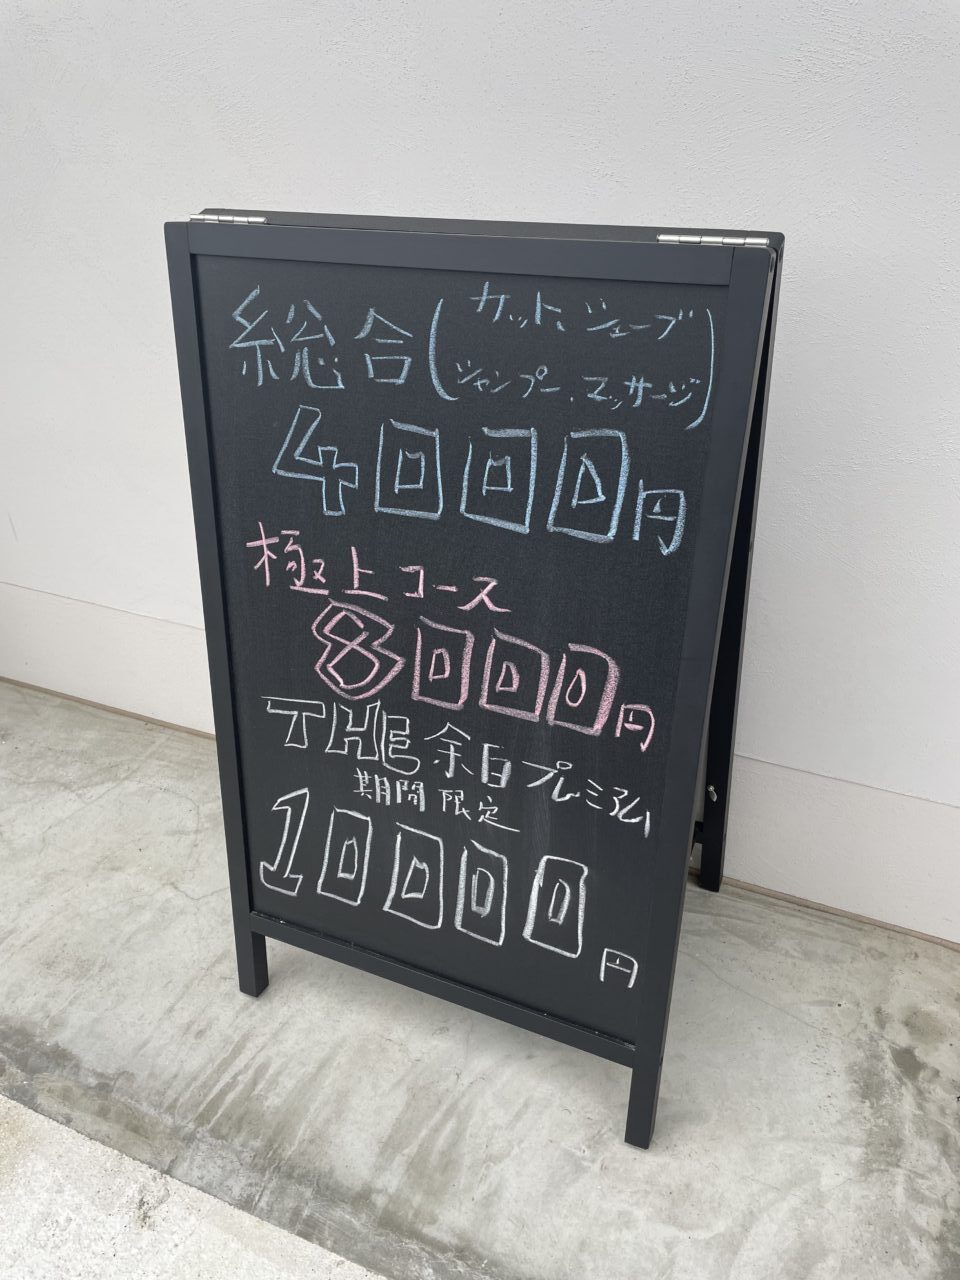 総合(カット、シェーブ
シャンプー、マッサージ)
4000円
極上コース
8000円
THE余白プレミアム
期間限定
10000円